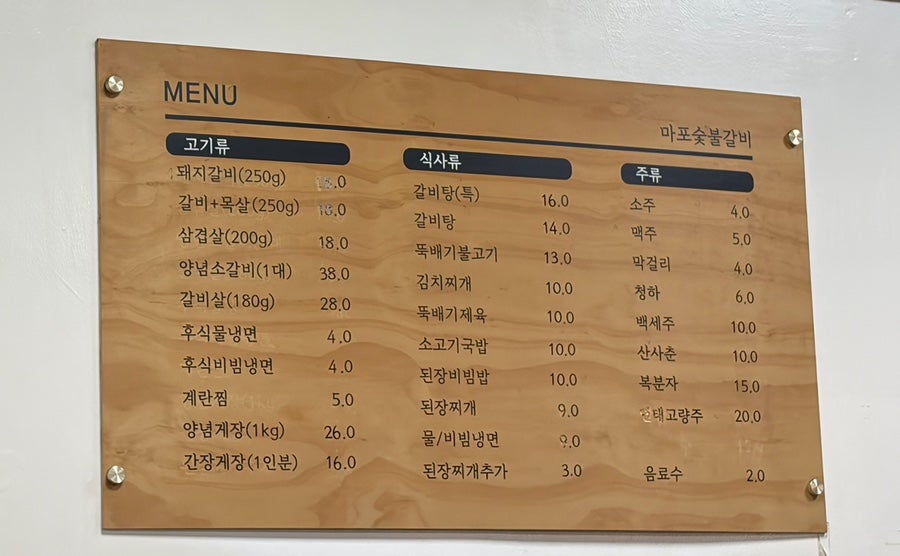 MENU
마포숯불갈비
고기류
돼지갈비(250g)
갈비+목살(250g)
삼겹살(200g) 18.0
양념소갈비(1대) 38.0
갈비살(180g) 28.0
후식물냉면 4.0
후식비빔냉면 4.0
계란찜 5.0
양념게장(1kg) 26.0
간장게장(1인분) 16.0
식사류
갈비탕(특) 16.0
갈비탕 14.0
뚝배기불고기 13.0
김치찌개 10.0
뚝배기제육 10.0
소고기국밥 10.0
된장비빔밥 10.0
된장찌개 9.0
물/비빔냉면 9.0
된장찌개추가 3.0
주류
소주 4.0
맥주 5.0
막걸리 4.0
청하 6.0
백세주 10.0
산사춘 10.0
복분자 15.0
20.0
음료수 2.0